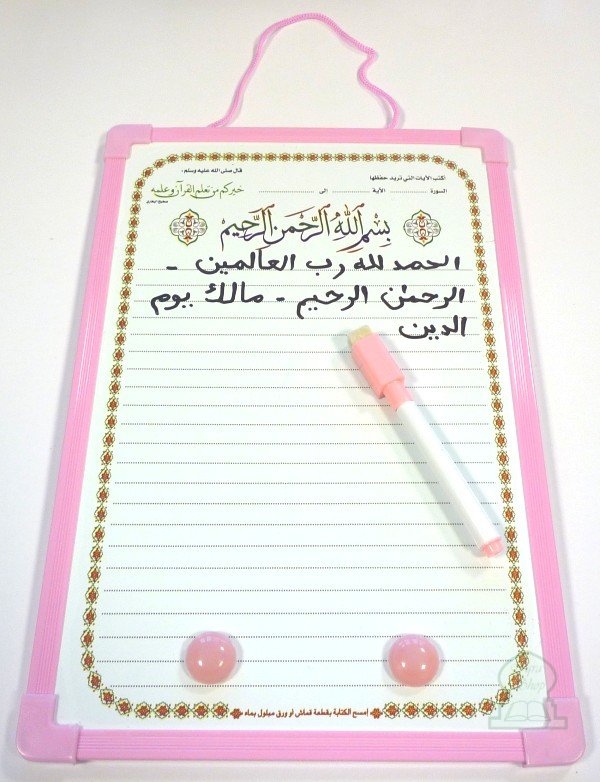 أكتب الآيات التي تريد حفظها
السورة .................... الآية .................... إلى ....................
قال صلى الله عليه وسلم:
خيركم من تعلم القرآن وعلمه
صحيح البخاري
بِسْمِ اللَّهِ الرَّحْمَنِ الرَّحِيمِ
الحمد لله رب العالمين -
الرحمٰن الرحيم - مالك يوم
الدين
إمسح الكتابة بقطعة قماش أو ورق مبلول بماء